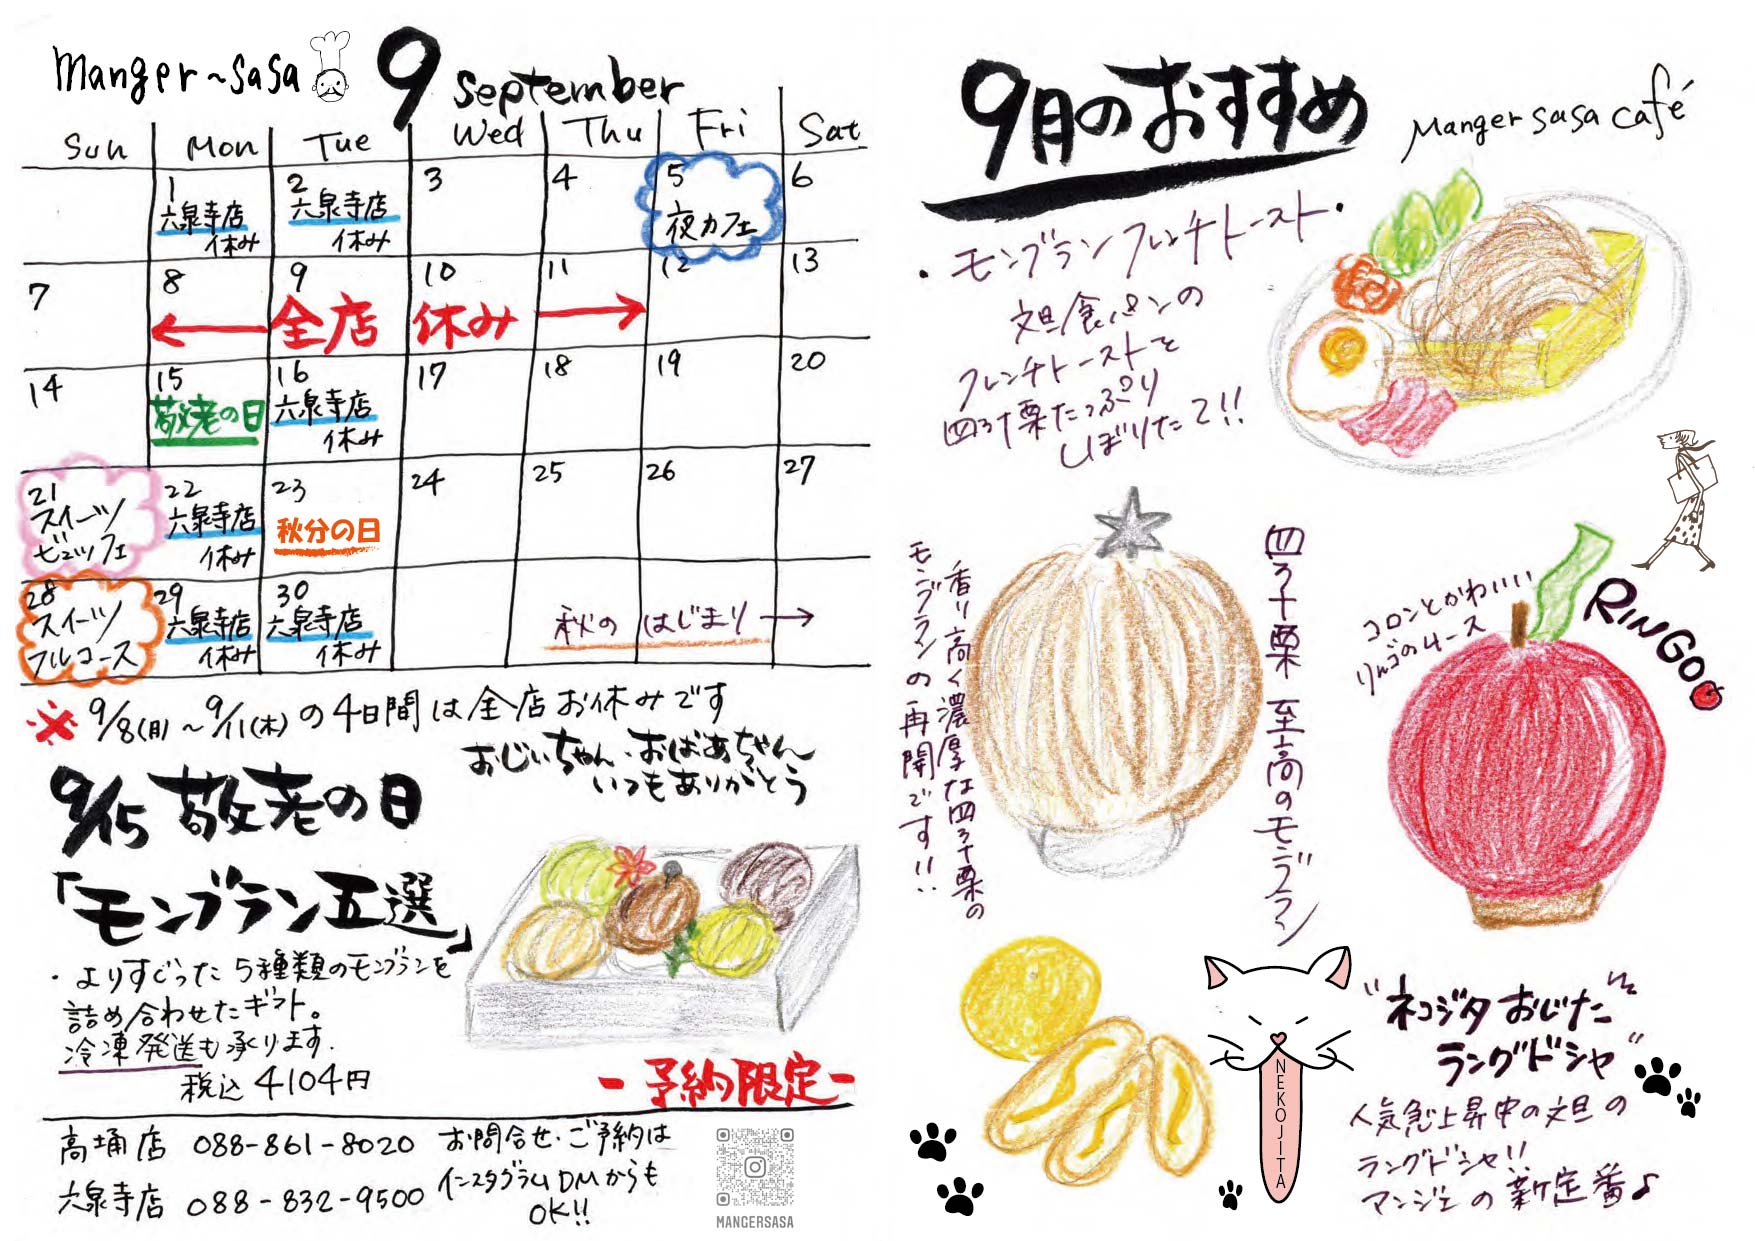 manger~sasa
9 september
Sun Mon Tue Wed Thu Fri Sat
1 2 3 4 5 6
六泉寺店 六泉寺店 夜カフェ
休み 休み
7 8 9 10 11 12 13
← 全店 休み →
14 15 16 17 18 19 20
敬老の日 六泉寺店
休み
21 22 23 24 25 26 27
スイーツ 六泉寺店 秋分の日
ビュッフェ 休み
28 29 30
スイーツ 六泉寺店 六泉寺店 秋の はじまり →
フルコース 休み 休み
※ 9/8(月)~9/11(木)の4日間は全店お休みです
おじいちゃん・おばあちゃん
いつもありがとう
9/15 敬老の日
「モンブラン五選」
・よりすぐった5種類のモンブランを
詰め合わせたギフト。
冷凍発送も承ります.
税込4104円
-予約限定-
高埇店 088-861-8020
六泉寺店 088-832-9500
お問合せ・ご予約は
インスタグラムDMからも
OK!!
MANGERSASA
9月のおすすめ
Manger sasa café
・モンブランフレンチトースト・
文旦食パンの
フレンチトーストと
四万十栗たっぷり
しぼりたて!!
四万十栗 至高のモンブラン
香り高く濃厚な四万十栗の
モンブランの再開です!!
RINGO
コロンとかわいい
りんごのムース
NEKOJITA
"ネコジタおじた
ラングドシャ"
人気急上昇中の文旦の
ラングドシャ!!
マンジェの新定番♪